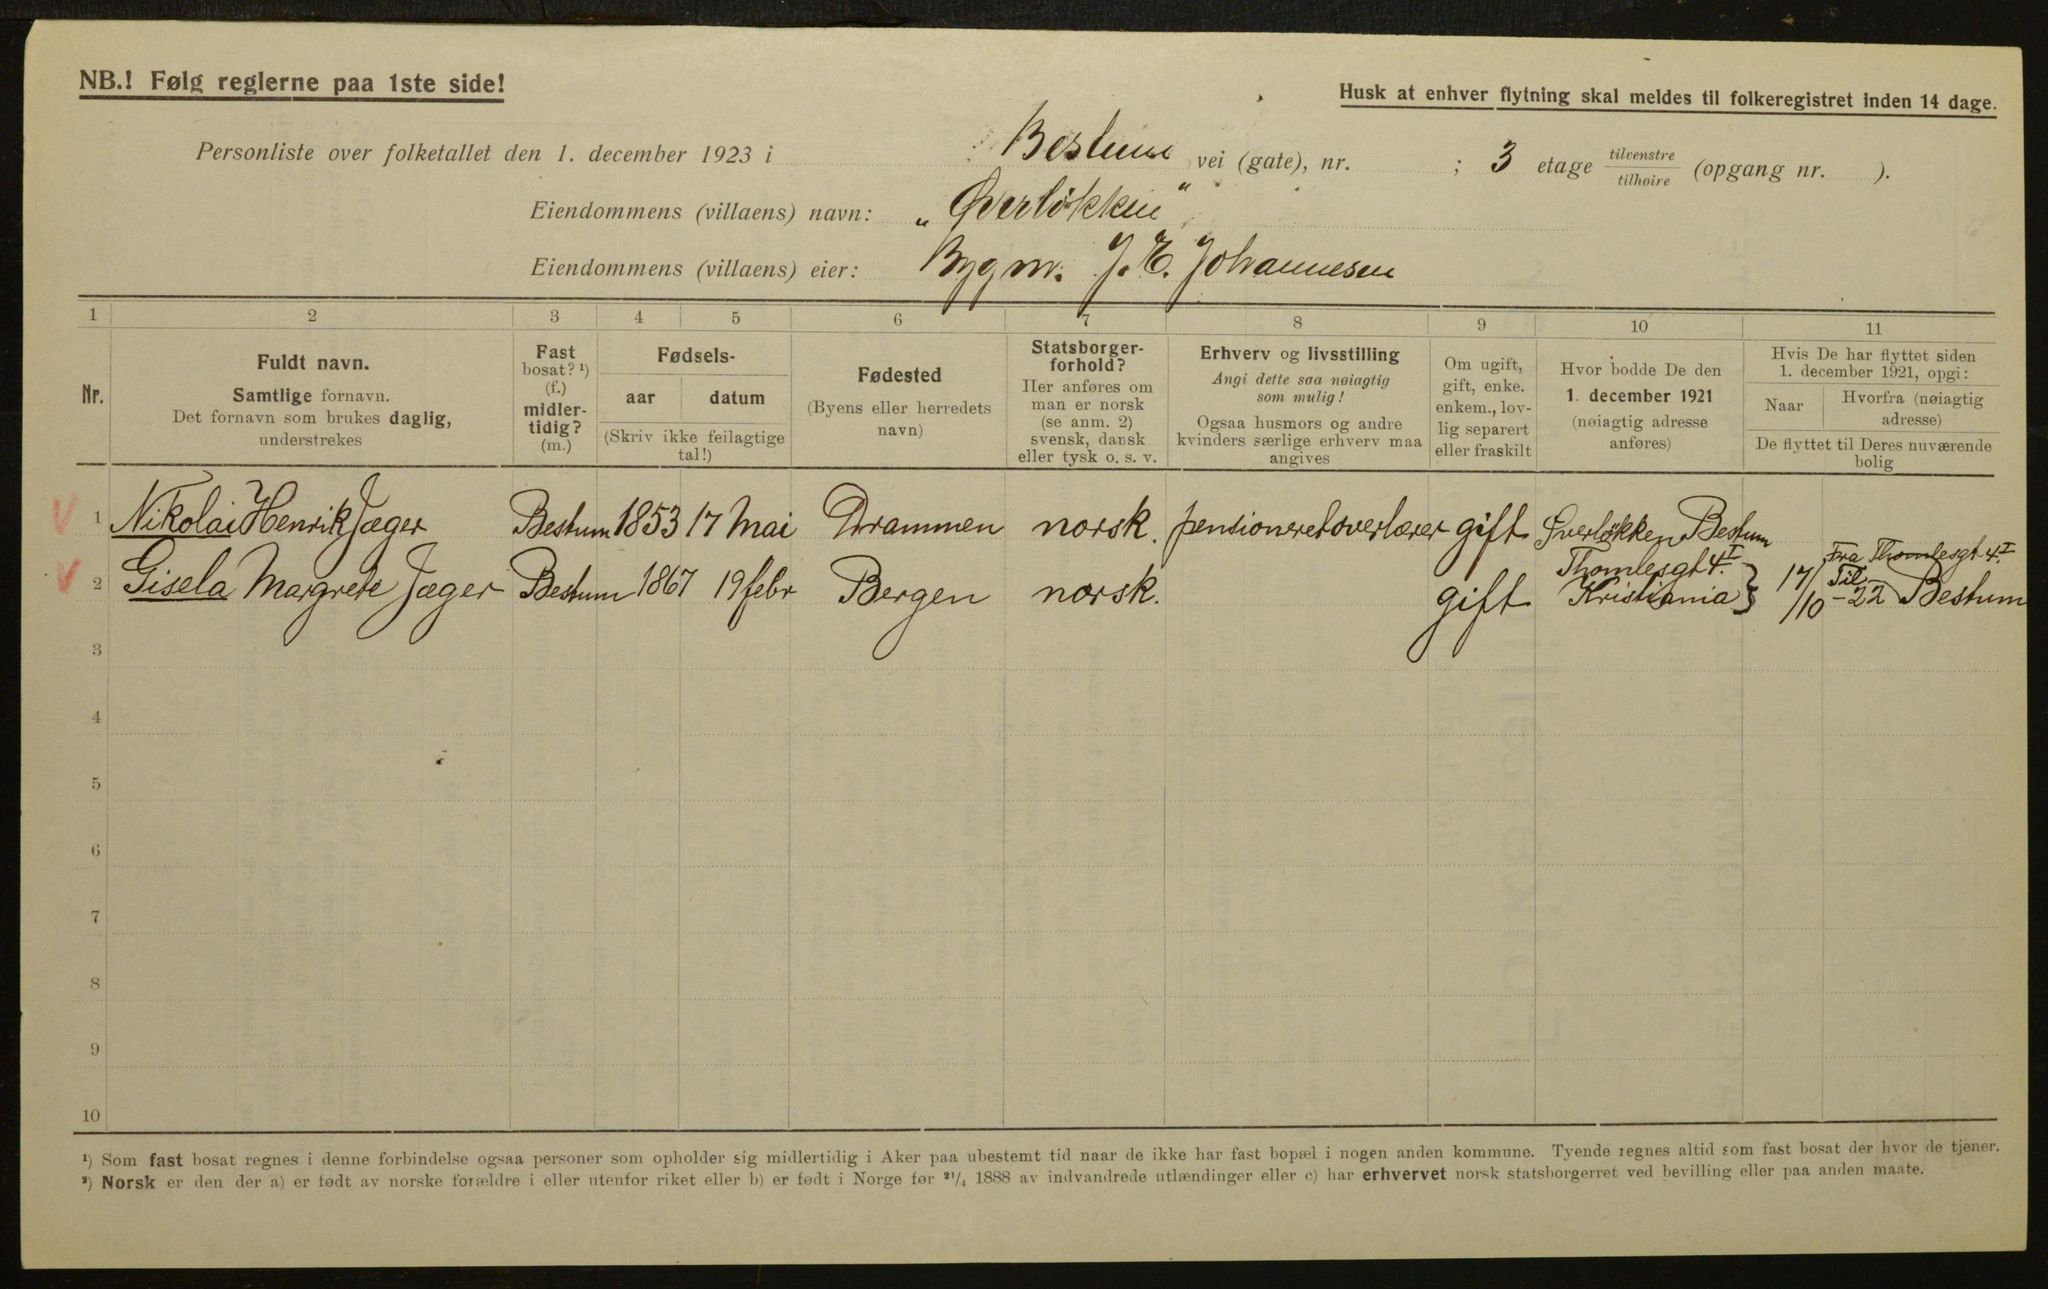 NB.! Følg reglerne paa 1ste side!
Husk at enhver flytning skal meldes til folkeregistret inden 14 dage.
Personliste over folketallet den 1. december 1923 i Bestum vei (gate), nr. ; 3 etage tilvenstre/tilhøire (opgang nr. ).
Eiendommens (villaens) navn: „Øverløkken"
Eiendommens (villaens) eier: Bygm. J. E. Johannesen
1 2 3 4 5 6 7 8 9 10 11
Nr.
Fuldt navn.
Samtlige fornavn.
Det fornavn som brukes daglig,
understrekes
Fast
bosat? ¹)
(f.)
midler-
tidig?
(m.)
Fødsels-
aar datum
(Skriv ikke feilagtige
tal!)
Fødested
(Byens eller herredets
navn)
Statsborger-
forhold?
Her anføres om
man er norsk
(se anm. 2)
svensk, dansk
eller tysk o. s. v.
Erhverv og livsstilling
Angi dette saa nøiagtig
som mulig!
Ogsaa husmors og andre
kvinders særlige erhverv maa
angives
Om ugift,
gift, enke.
enkem., lov-
lig separert
eller fraskilt
Hvor bodde De den
1. december 1921
(nøiagtig adresse
anføres)
Hvis De har flyttet siden
1. december 1921, opgi:
Naar
Hvorfra (nøiagtig
adresse)
De flyttet til Deres nuværende
bolig
1 Nikolai Henrik Jæger Bestum 1853 17 Mai Drammen norsk. pensioneret overlærer gift Øverløkken Bestum
2 Gisela Margrete Jæger Bestum 1867 19 febr Bergen norsk. gift Thomlesgt 4 I. Kristiania } 17/10-22 Fra Thomlesgt. 4 I. Til Bestum
3
4
5
6
7
8
9
10
¹) Som fast bosat regnes i denne forbindelse ogsaa personer som opholder sig midlertidig i Aker paa ubestemt tid naar de ikke har fast bopæl i nogen anden kommune. Tyende regnes altid som fast bosat der hvor de tjener.
²) Norsk er den der a) er født av norske forældre i eller utenfor riket eller b) er født i Norge før ²¹/₄ 1888 av indvandrede utlændinger eller c) har erhvervet norsk statsborgerret ved bevilling eller paa anden maate.